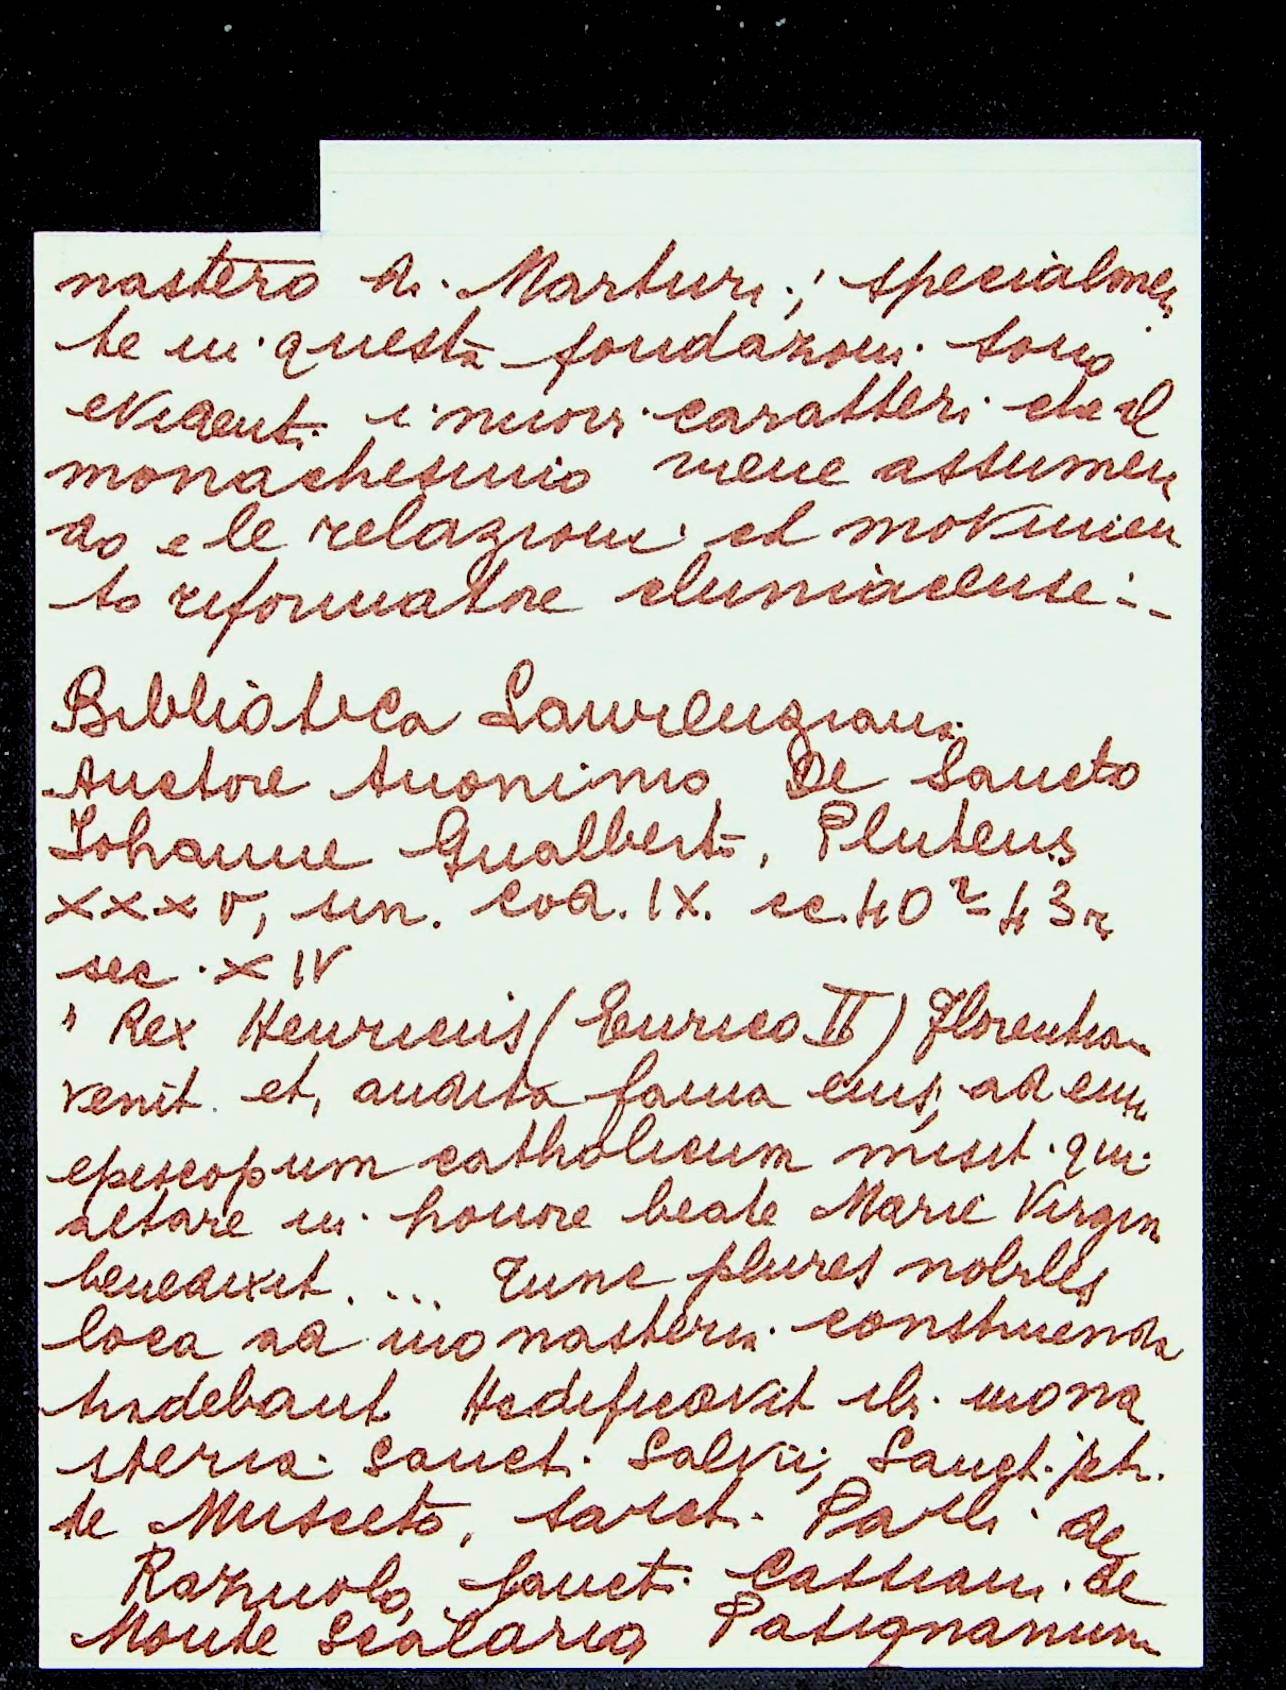 nastero di Marturi; specialmen
te in queste fondazioni sono
evidenti i nuovi caratteri che il
monachesimio viene assumen
do e le relazioni col movimen
to riformatore cluniacense:-
Biblioteca Laurenziana
Auctore Anonimo De Sancto
Iohanne Gualberto, Pluteus
XXXV, sin. cod. IX. cc. 40r-43r
sec. XIV
Rex Henricus (Enrico II) Florentiam
venit et, audita fama eius, ad eum
episcopum catholicum misit qui
altare in honore beate Marie Virgin
benedixit. ... Tunc plures nobiles
loca ad monasteria construenda
tradebant Hedificavit ibi mona
steria Sancti Salvii, Sancti petri
de Musceto, sancti Pauli de
Razuolo, Sancti Cassiani de
Monte Scalario Passignanum